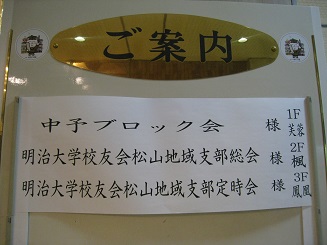 ご案内
中予ブロック会 様 1F 芙蓉
明治大学校友会松山地域支部総会 様 2F 楓
明治大学校友会松山地域支部定時会 様 3F 鳳凰